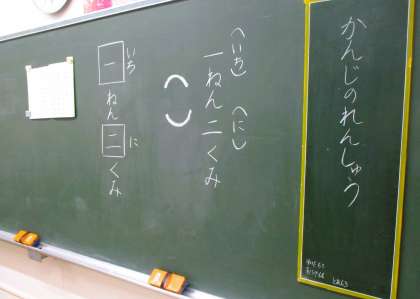 かんじのれんしゅう
（いち）
（に）
一ねん二くみ
（ ）
いち
に
一ねん二くみ